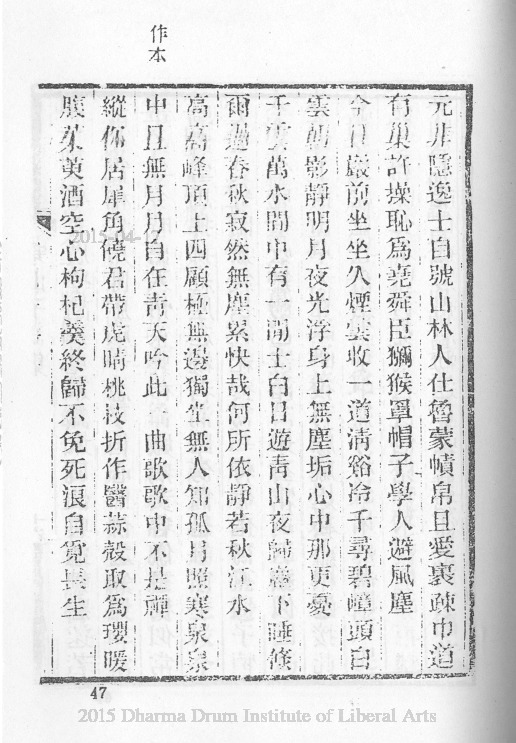 作本
元非隱逸士自號山林人仕魯蒙幘帛且愛裹疎巾道
有巢許操恥為堯舜臣獼猴罩帽子學人避風塵
今日巖前坐坐久煙雲收一道清谿冷千尋碧嶂頭白
雲朝影靜明月夜光浮身上無塵垢心中那更憂
千雲萬水間中有一閒士白日遊青山夜歸巖下睡倏
爾過春秋寂然無塵累快哉何所依靜若秋江水
高高峰頂上四顧極無邊獨坐無人知孤月照寒泉泉
中且無月月自在青天吟此一曲歌歌中不是禪
縱你居犀角饒君帶虎睛桃枝折作醫蒜殼取為瓔暖
腹茱萸酒空心枸杞羹終歸不免死浪自覓長生
47
2015 Dharma Drum Institute of Liberal Arts